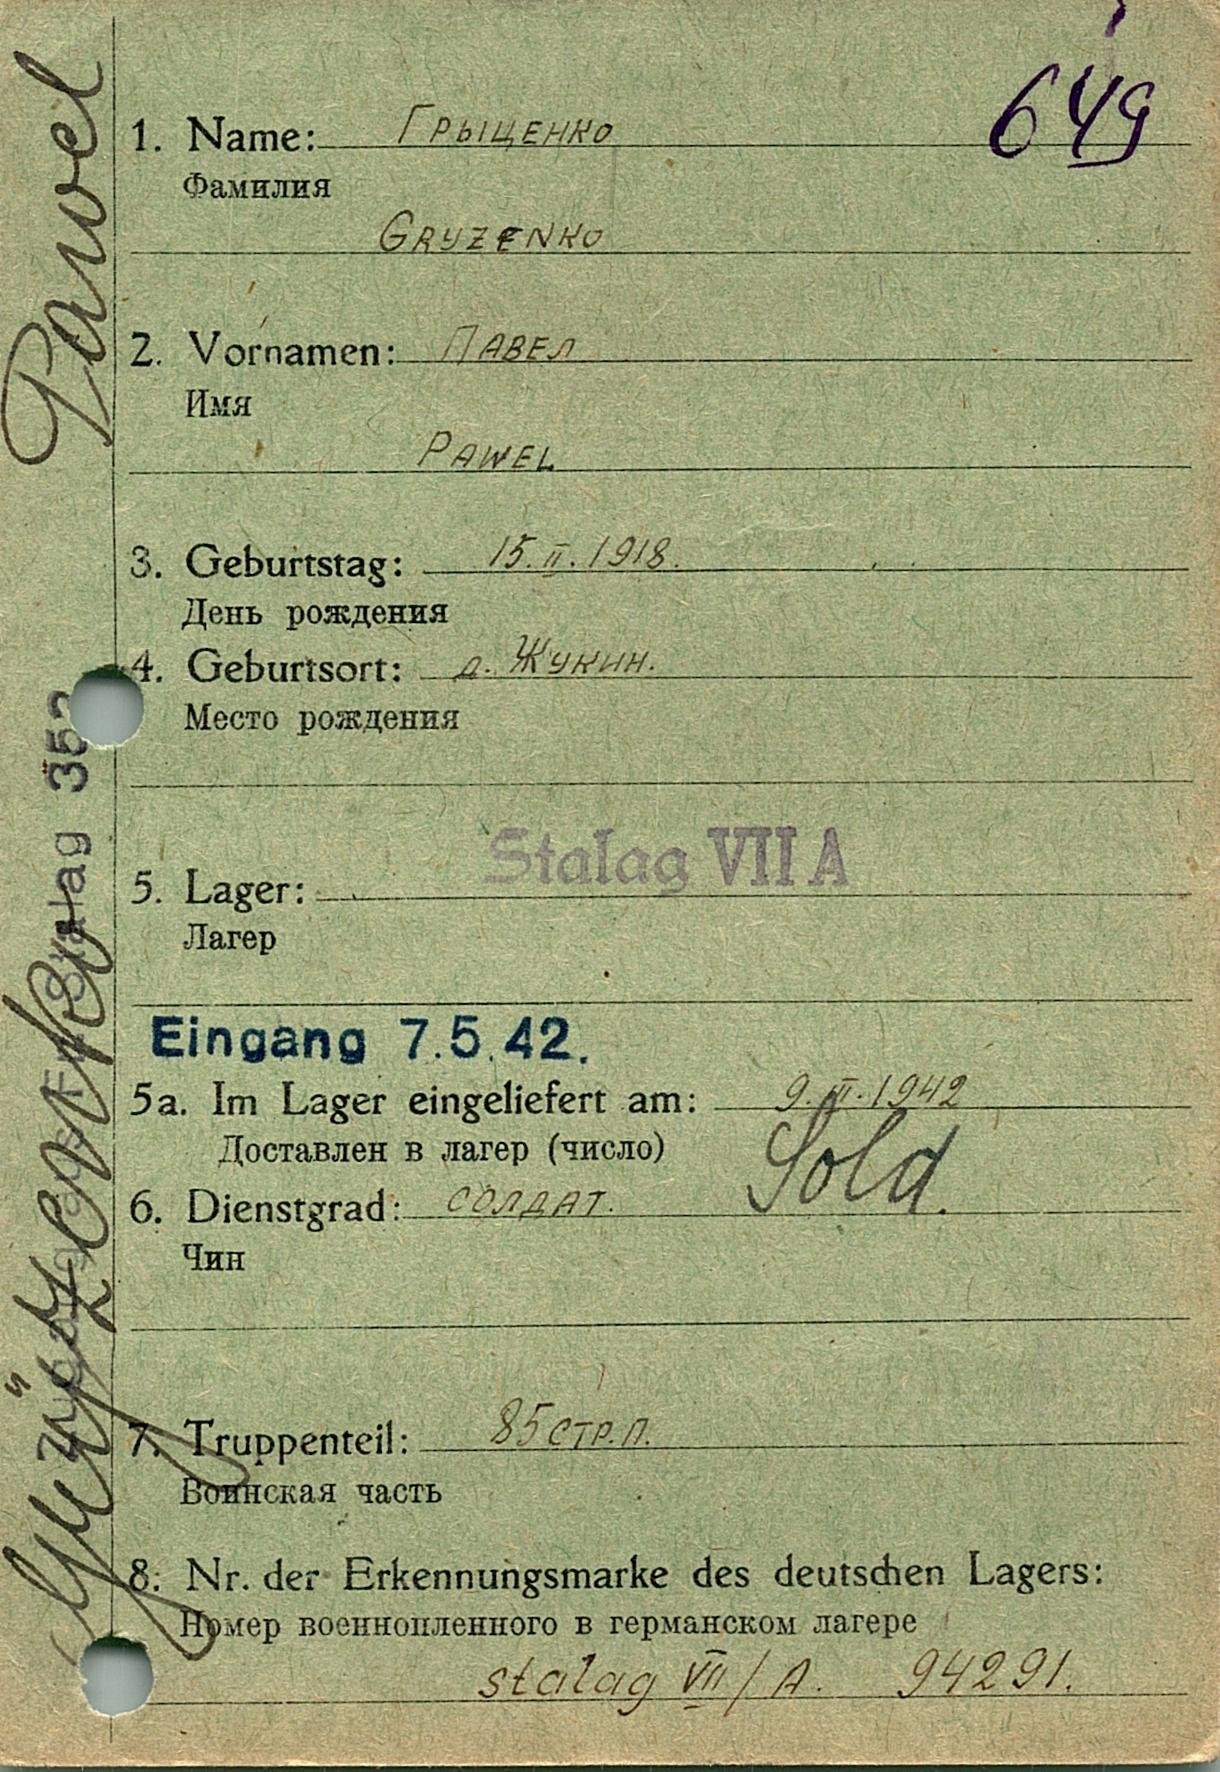 649
1. Name: Грыценко
Фамилия
Gryzenko
2. Vornamen: Павел
Имя
Pawel
3. Geburtstag: 15.II.1918.
День рождения
4. Geburtsort: д. Жукин.
Место рождения
Stalag VII A
5. Lager:
Лагер
Eingang 7.5.42.
5a. Im Lager eingeliefert am: 9.III.1942
Доставлен в лагер (число)
6. Dienstgrad: солдат. Sold.
Чин
7. Truppenteil: 85 стр.п.
Воинская часть
8. Nr. der Erkennungsmarke des deutschen Lagers:
Номер военнопленного в германском лагере
stalag VII/A. 94291.
Pawel
Stalag